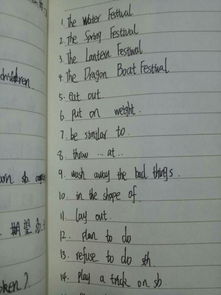 children
1. The Water Festival
2. The Spring Festival
3. The Lantern Festival
4. The Dragon Boat Festival
5. eat out
6. put on weight.
7. be similar to.
8. throw ... at ...
9. wash away the bad things.
10. in the shape of
11. lay out.
12. plan to do
13. refuse to do sth
14. play a trick on sb